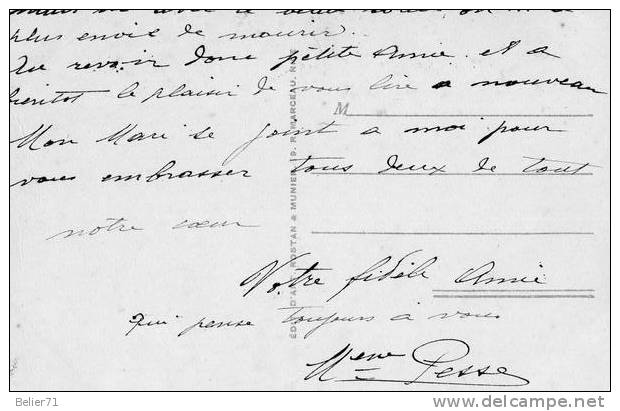 mais
plus envie de mourir..
Au revoir donc petite Amie et a
bientot le plaisir de vous lire a nouveau
Mon Mari se joint a moi pour
vous embrasser tous deux de tout
notre cœur
Votre fidèle Amie
qui pense toujours à vous
Mme Pesse
M
EDIT. D'ART ROSTAN & MUNIER, 9, R. MARCEAU, N
Belier71
www.delcampe.net